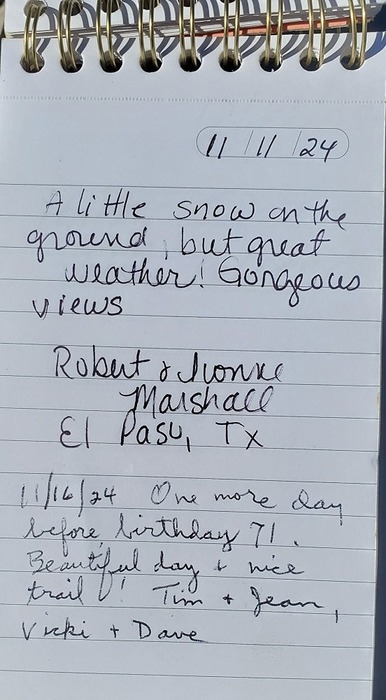 11/11/24
A little snow on the
ground, but great
weather! Gorgeous
views
Robert & Ivonne
Marshall
El Paso, TX
11/16/24 One more day
before birthday 71.
Beautiful day + nice
trail! Tim + Jean,
Vicki + Dave